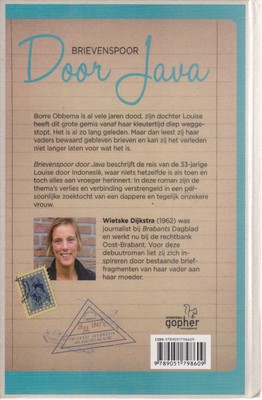 BRIEVENSPOOR
Door Java
Borre Obbema is al vele jaren dood, zijn dochter Louise
heeft dit grote gemis vanaf haar kleutertijd diep wegge-
stopt. Het is al zo lang geleden. Maar dan leest zij haar
vaders bewaard gebleven brieven en kan zij het verleden
niet langer laten voor wat het is.
Brievenspoor door Java beschrijft de reis van de 33-jarige
Louise door Indonesië, waar niets hetzelfde is als toen en
toch alles aan vroeger herinnert. In deze roman zijn de
thema's verlies en verbinding verstrengeld in een per-
soonlijke zoektocht van een dappere en tegelijk onzekere
vrouw.
Wietske Dijkstra (1962) was
journalist bij Brabants Dagblad
en werkt nu bij de rechtbank
Oost-Brabant. Voor deze
debuutroman liet zij zich in-
spireren door bestaande brief-
fragmenten van haar vader aan
haar moeder.
gopher
ISBN 9789051798609
9 789051 798609